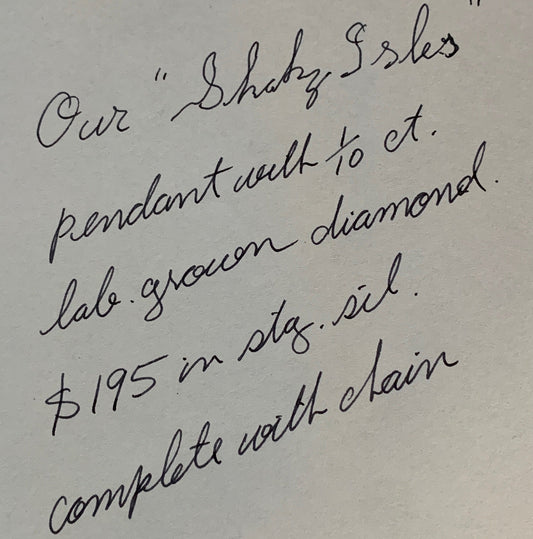 Our "Shaky Isles"
pendant with 1/10 ct.
lab. grown diamond.
$195 in stg. sil.
complete with chain